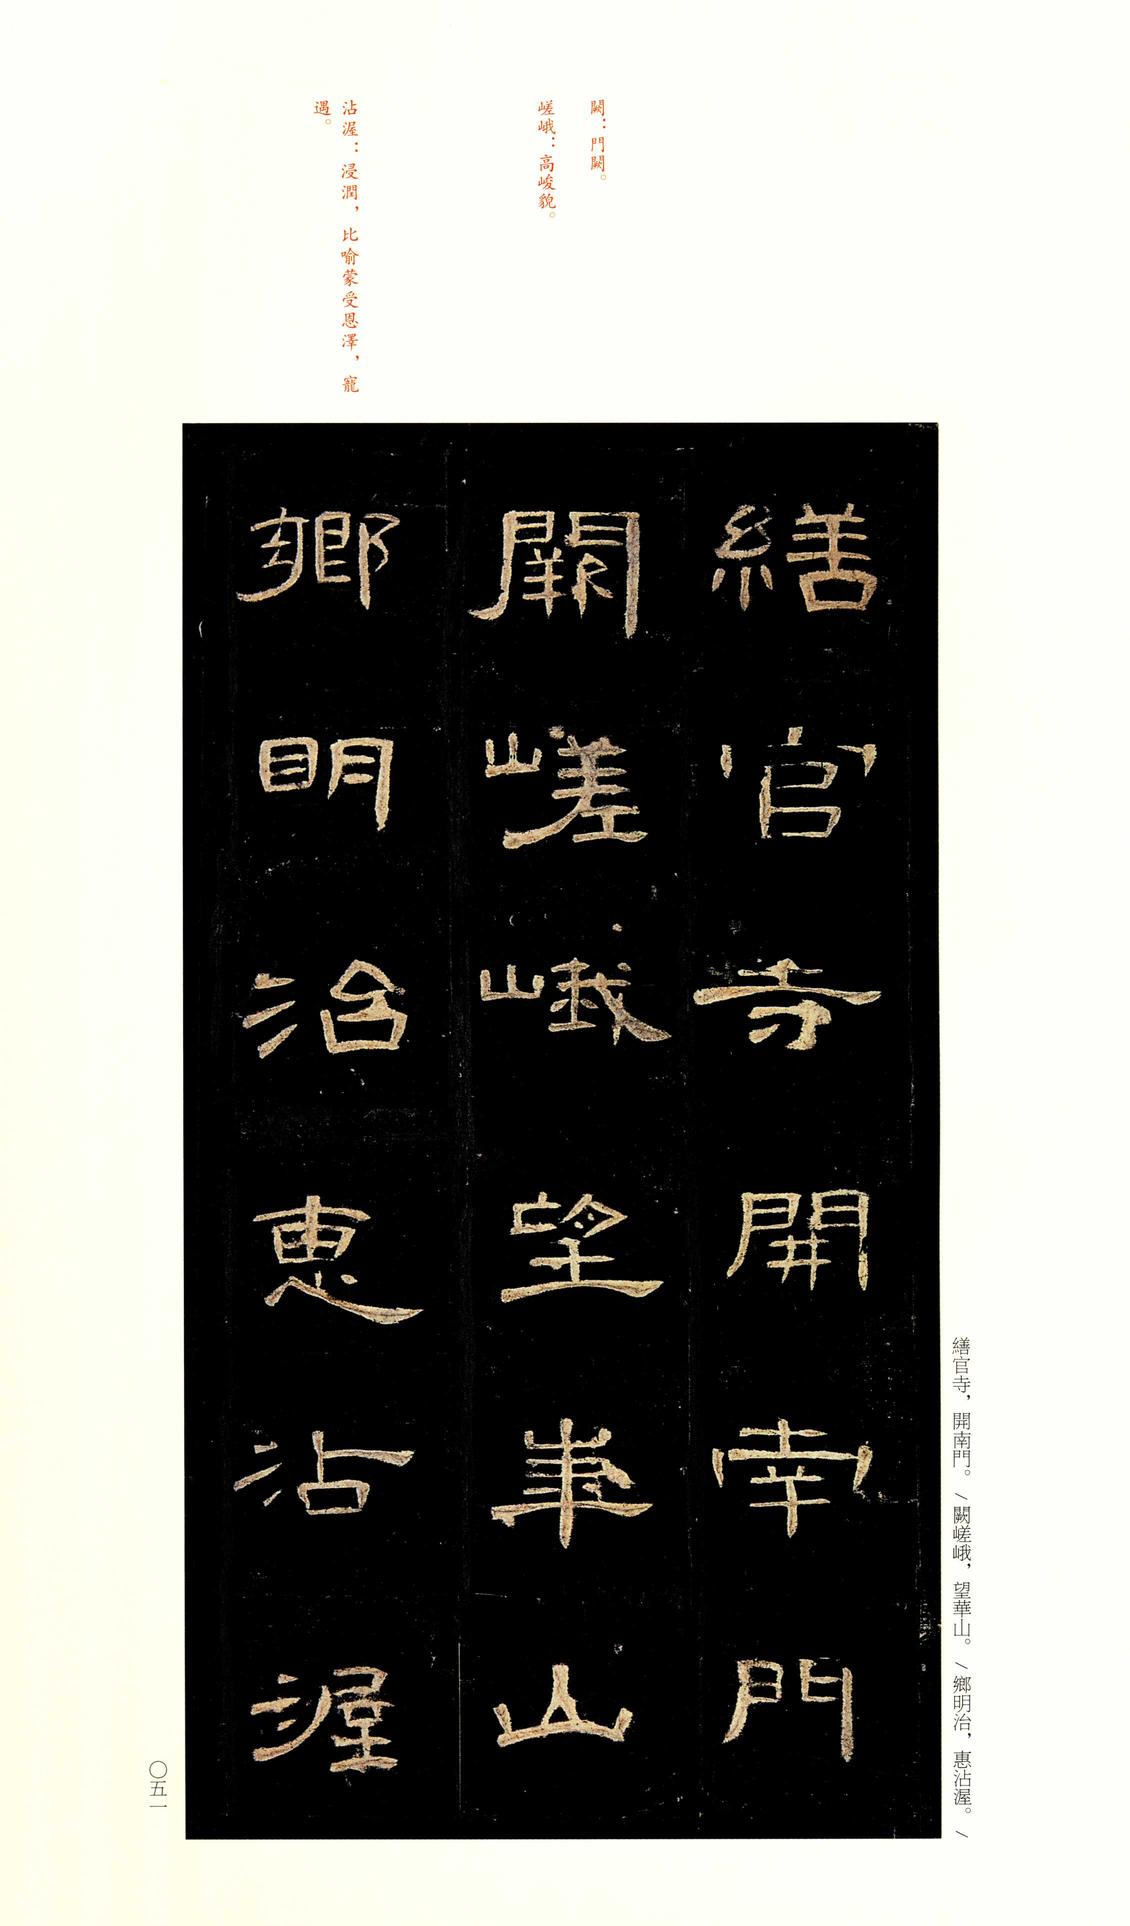 闕：門闕。
嵯峨：高峻貌。
沾渥：浸潤，比喻蒙受恩澤，寵
遇。
繕官寺開南門
闕嵯峨望華山
鄉明治惠沾渥
繕官寺，開南門。/闕嵯峨，望華山。/鄉明治，惠沾渥。/
〇五一